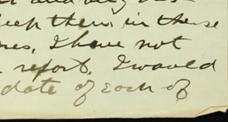 keep them in these
I have not
report. I would
date of each of